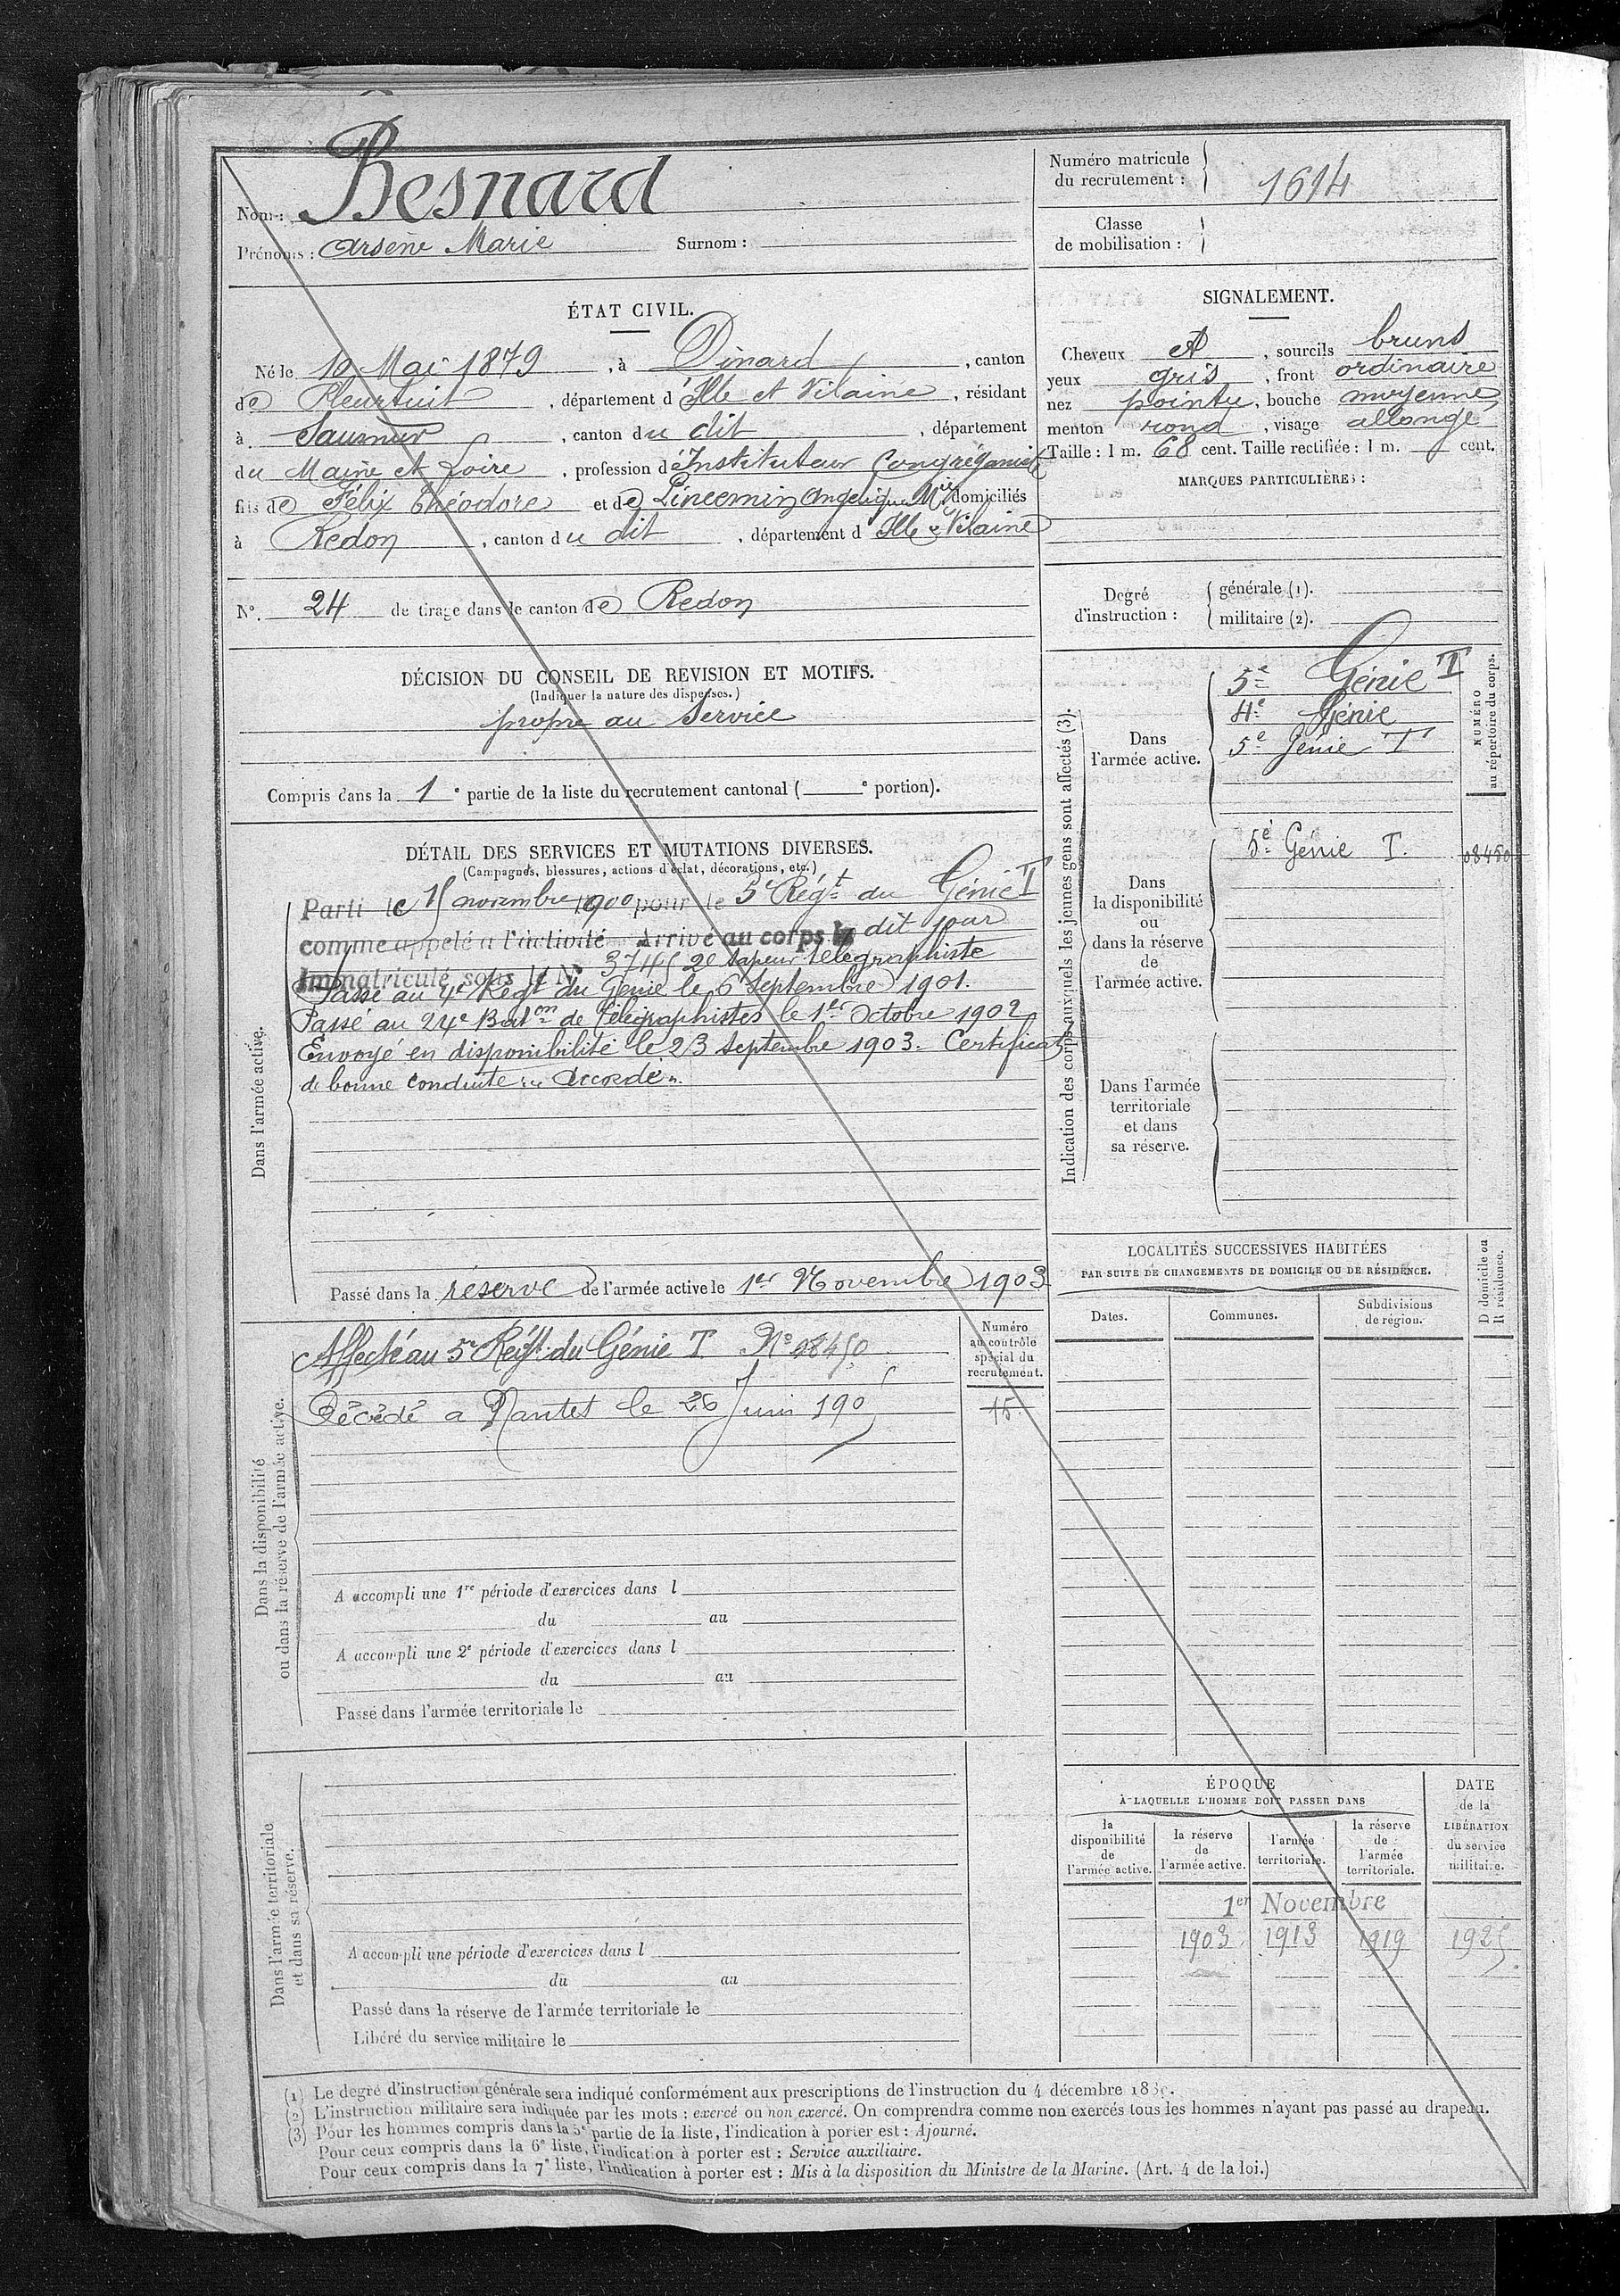 Nom : Besnard
Prénoms : Arsène Marie Surnom :
Numéro matricule
du recrutement : 1614
Classe
de mobilisation :
ÉTAT CIVIL.
Né le 10 Mai 1879, à Dinard, canton
de Pleurtuit, département d'Ille et Vilaine, résidant
à Saumur, canton du dit, département
du Maine et Loire, profession d'Instituteur Congréganiste
fils de Félix Théodore et de Angélique Mie domiciliés
à Redon, canton du dit, département d Ille & Vilaine
N°. 24 de tirage dans le canton de Redon
SIGNALEMENT.
Cheveux et, sourcils bruns
yeux gris, front ordinaire
nez pointu, bouche moyenne
menton rond, visage allongé
Taille : 1 m. 68 cent. Taille rectifiée : 1 m. cent.
MARQUES PARTICULIÈRES :
Degré
d'instruction :
générale (1).
militaire (2).
DÉCISION DU CONSEIL DE REVISION ET MOTIFS.
(Indiquer la nature des dispenses.)
propre au service
Compris dans la 1e partie de la liste du recrutement cantonal ( e portion).
DÉTAIL DES SERVICES ET MUTATIONS DIVERSES.
(Campagnes, blessures, actions d'éclat, décorations, etc.)
Dans l'armée active.
Parti le 15 novembre 1900 pour le 5e Régt du Génie T
comme appelé à l'activité Arrivé au corps le dit jour
Immatriculé sous le N° 3745 2e sapeur télégraphiste
Passé au 4e Régt du Génie le 6 Septembre 1901.
Passé au 24e Baton de Télégraphistes le 1er Octobre 1902
Envoyé en disponibilité le 23 septembre 1903. Certificat
de bonne conduite "Accordé".
Passé dans la réserve de l'armée active le 1er Novembre 1903
Indication des corps auxquels les jeunes gens sont affectés (3).
NUMÉRO
au répertoire du corps.
Dans
l'armée active.
5e Génie T
4e Génie
5e Génie T
Dans
la disponibilité
ou
dans la réserve
de
l'armée active.
5e Génie T.
08450
Dans l'armée
territoriale
et dans
sa réserve.
Dans la disponibilité
ou dans la réserve de l'armée active.
Numéro
au contrôle
spécial du
recrutement.
Affecté au 5e Régt du Génie T. N° 08450
Décédé a Nantes le 26 Juin 1905
15
A accompli une 1re période d'exercices dans l
du au
A accompli une 2e période d'exercices dans l
du au
Passé dans l'armée territoriale le
LOCALITÉS SUCCESSIVES HABITÉES
PAR SUITE DE CHANGEMENTS DE DOMICILE OU DE RÉSIDENCE.
D domicile ou
R résidence.
Dates. Communes. Subdivisions
de région.
Dans l'armée territoriale
et dans sa réserve.
A accompli une période d'exercices dans l
du au
Passé dans la réserve de l'armée territoriale le
Libéré du service militaire le
ÉPOQUE
À LAQUELLE L'HOMME DOIT PASSER DANS
la
disponibilité
de
l'armée active.
la réserve
de
l'armée active.
l'armée
territoriale.
la réserve
de
l'armée
territoriale.
DATE
de la
LIBÉRATION
du service
militaire.
1er Novembre
1903 1913 1919 1925
(1) Le degré d'instruction générale sera indiqué conformément aux prescriptions de l'instruction du 4 décembre
(2) L'instruction militaire sera indiquée par les mots : exercé ou non exercé. On comprendra comme non exercés tous les hommes n'ayant pas passé au drapeau.
(3) Pour les hommes compris dans la 5e partie de la liste, l'indication à porter est : Ajourné.
Pour ceux compris dans la 6e liste, l'indication à porter est : Service auxiliaire.
Pour ceux compris dans la 7e liste, l'indication à porter est : Mis à la disposition du Ministre de la Marine. (Art. 4 de la loi.)